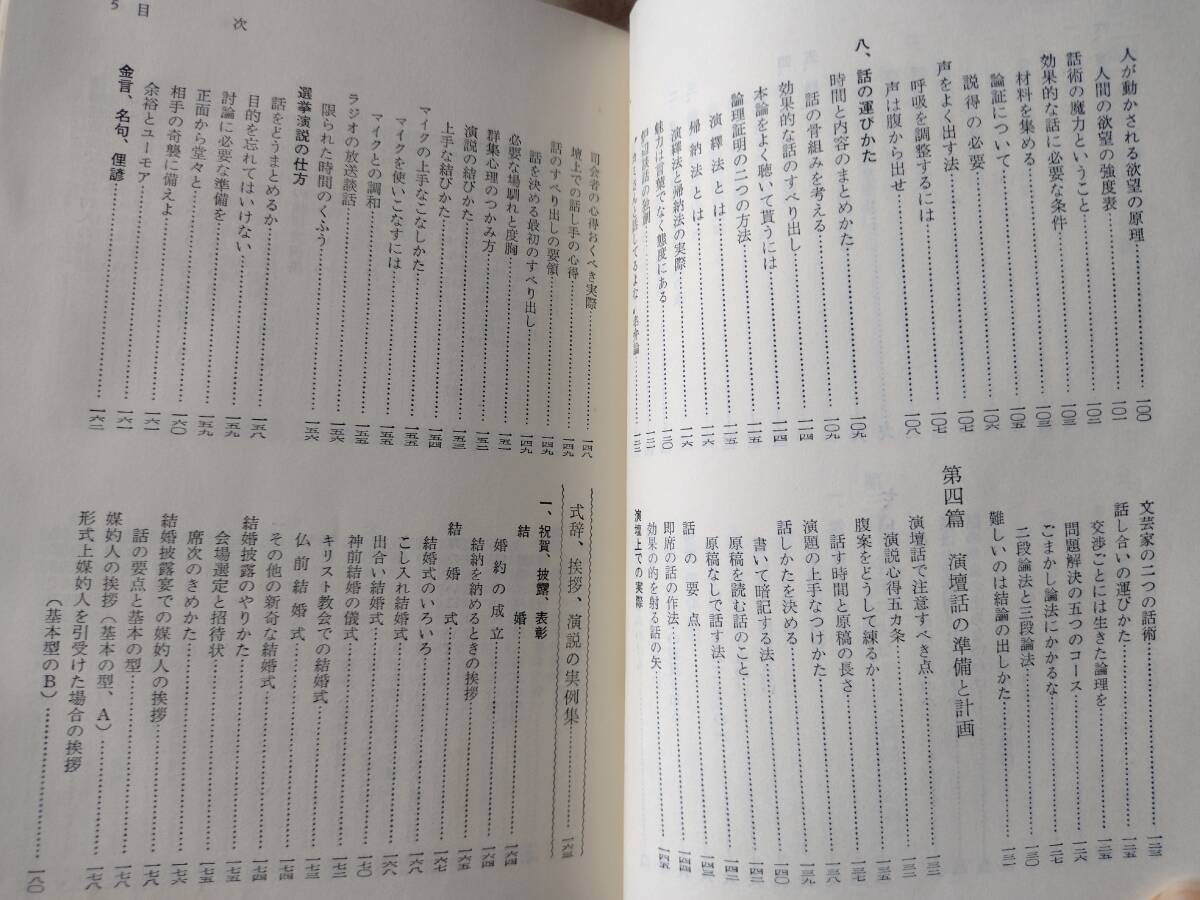 人が動かされる欲望の原理……一〇〇
人間の欲望の強度表……一〇一
話術の魔力ということ……一〇二
効果的な話に必要な条件……一〇三
材料を集める……一〇三
論証について……一〇五
説得の必要……一〇六
声をよく出す法……一〇七
呼吸を調整するには……一〇七
声は腹から出せ……一〇八
八、話の運びかた
時間と内容のまとめかた……一〇九
話の骨組みを考える……一〇九
効果的な話のすべり出し……一一四
本論をよく聴いて貰うには……一一四
論理証明の二つの方法……一一五
演繹法とは……一一五
帰納法とは……一一六
演繹法と帰納法の実際……一一六
魅力は言葉でなく態度にある……一二〇
一二一
一二二
文芸家の二つの話術……一二三
話し合いの運びかた……一二五
交渉ごとには生きた論理を……一二五
問題解決の五つのコース……一二六
ごまかし論法にかかるな……一二八
二段論法と三段論法……一三〇
難しいのは結論の出しかた……一三一
第四篇 演壇話の準備と計画
演壇話で注意すべき点……一三二
演説心得五カ条……一三二
腹案をどうして練るか……一三七
話す時間と原稿の長さ……一三七
演題の上手なつけかた……一三八
話しかたを決める……一三九
書いて暗記する法……一四〇
原稿を読む話のこと……一四一
原稿なしで話す法……一四二
話の要点……一四三
即席の話の作法……一四四
効果の的を射る話の矢……一四五
演壇上での実際
5 目次
司会者の心得おくべき実際……一四八
壇上での話し手の心得……一四九
話のすべり出しの要領……一四九
話を決める最初のすべり出し……一四九
必要な場馴れと度胸……一五一
群集心理のつかみ方……一五二
演説の結びかた……一五三
上手な結びかた……一五四
マイクの上手なこなしかた……一五五
マイクを使いこなすには……一五五
マイクとの調和……一五五
ラジオの放送談話……一五六
限られた時間のくふう……一五六
選挙演説の仕方
話をどうまとめるか……一五八
目的を忘れてはいけない……一五九
討論に必要な準備を……一五九
正面から堂々と……一六〇
相手の奇襲に備えよ……一六一
余裕とユーモア……一六一
金言、名句、俚諺……一六二
式辞、挨拶、演説の実例集……一六三
一、祝賀、披露、表彰
結婚……一六四
婚約の成立……一六四
結納を納めるときの挨拶……一六五
結婚式……一六七
結婚式のいろいろ……一六八
こし入れ結婚式……一六八
出合い結婚式……一七〇
神前結婚の儀式……一七二
キリスト教会での結婚式……一七三
仏前結婚式……一七四
その他の新奇な結婚式……一七四
結婚披露のやりかた……一七五
会場選定と招待状……一七五
席次のきめかた……一七六
結婚披露宴での媒妁人の挨拶……一七八
話の要点と基本の型……一七八
媒妁人の挨拶（基本の型、A）……一七八
形式上媒妁人を引受けた場合の挨拶
（基本型のB）……一八〇